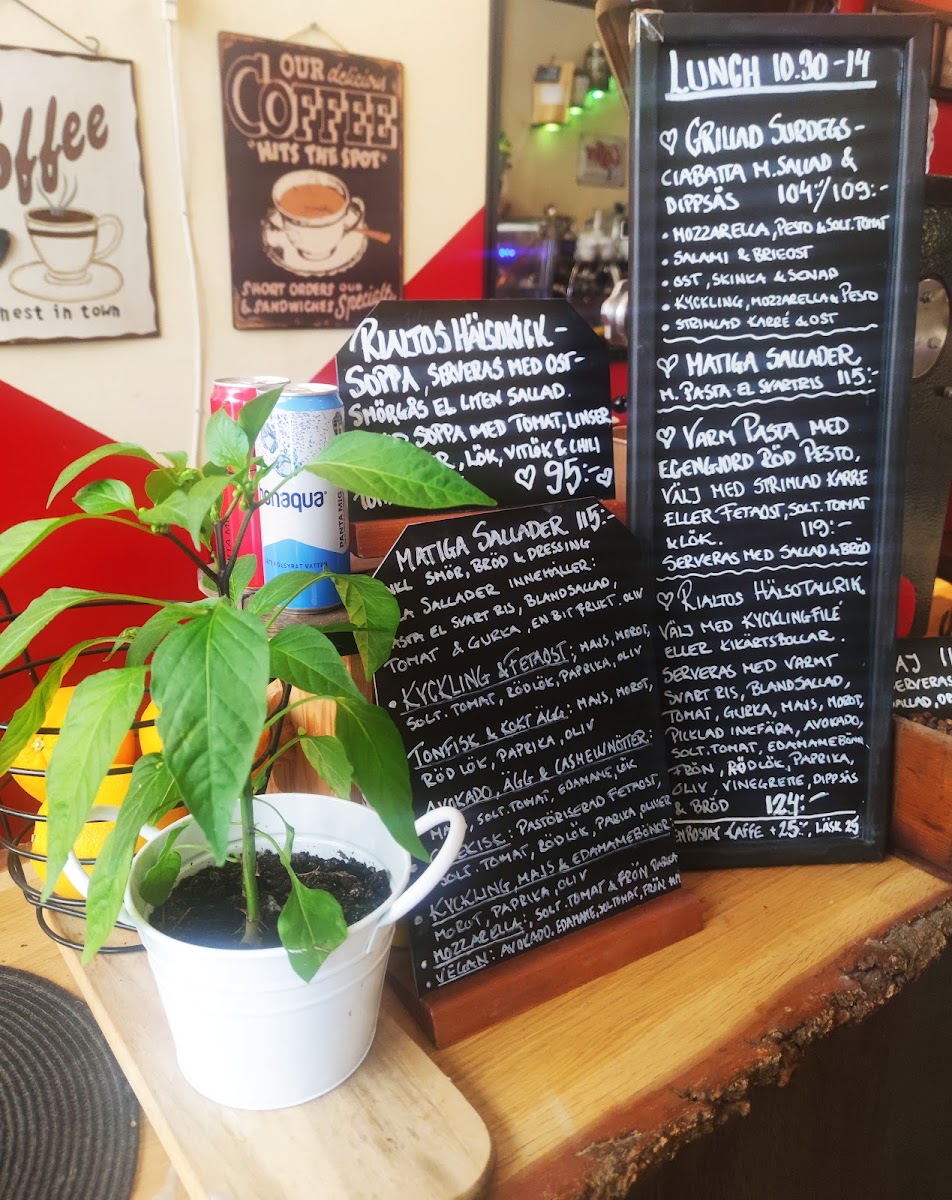 offee
nest in town
OUR delicious
COFFEE
"HITS THE SPOT"
SHORT ORDERS OUR
& SANDWICHES Specialty
bonaqua
KOLSYRAT VATTEN
PANTA MIG
RIALTOS HÄLSOKICK -
SOPPA, SERVERAS MED OST-
SMÖRGÅS EL LITEN SALLAD.
SOPPA MED TOMAT, LINSER
, LÖK, VITLÖK & CHILI
♡ 95:- ♡
MATIGA SALLADER 115:-
SMÖR, BRÖD & DRESSING
SALLADER INNEHÅLLER:
PASTA EL SVART RIS, BLANDSALLAD,
TOMAT & GURKA, EN BIT FRUKT. OLIV
• KYCKLING & FETAOST: MAIS, MOROT,
SOLT. TOMAT, RÖDLÖK, PAPRIKA, OLIV
TONFISK & KOKT ÄGG: MAIS, MOROT,
RÖDLÖK, PAPRIKA, OLIV
AVOKADO, ÄGG & CASHEWNÖTTER:
SOLT. TOMAT, EDAMAME, LÖK
PASTÖRISERAD FETAOST,
SOLT. TOMAT, RÖDLÖK, PARIKA, OLIVER
• KYCKLING, MAIS & EDAMAMEBÖNOR:
MOROT, PAPRIKA, OLIV
• MOZZARELLA: SOLT. TOMAT & FRÖN PAPRIKA
• VEGAN: AVOKADO, EDAMAME, SOLTOMAT, FRÖN
LUNCH 10.30-14
♡ GRILLAD SURDEGS-
CIABATTA M. SALLAD &
DIPPSÅS 104:-/109:-
• MOZZARELLA, PESTO & SOLT. TOMAT
• SALAMI & BRIEOST
• OST, SKINKA & SENAP
• KYCKLING, MOZZARELLA & PESTO
• STRIMLAD KARRÉ & OST
♡ MATIGA SALLADER
M. PASTA EL SVARTRIS 115:-
♡ VARM PASTA MED
EGENGJORD RÖD PESTO,
VÄLJ MED STRIMLAD KARRE
ELLER FETAOST, SOLT. TOMAT
& LÖK. 119:-
SERVERAS MED SALLAD & BRÖD
♡ RIALTOS HÄLSOTALLRIK
VÄLJ MED KYCKLINGFILÉ
ELLER KIKÄRTSBOLLAR.
SERVERAS MED VARMT
SVART RIS, BLANDSALLAD,
TOMAT, GURKA, MAIS, MOROT,
PICKLAD INGEFÄRA, AVOKADO,
SOLT. TOMAT, EDAMAMEBÖNOR
FRÖN, RÖDLÖK, PAPRIKA,
OLIV, VINEGRETE, DIPPSÅS
& BRÖD 124:-
KAFFE + 25:-, LÄSK 25